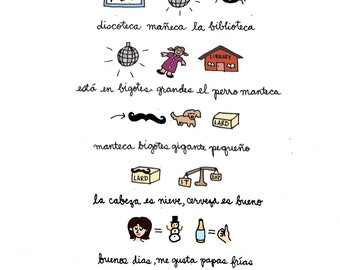 discoteca muñeca la biblioteca
LIBRARY
está en bigotes grandes el perro manteca
LARD
manteca bigotes gigante pequeño
LARD IT LARD
la cabeza es nieve, cerveza es bueno
= =
buenos dias, me gusta papas frías